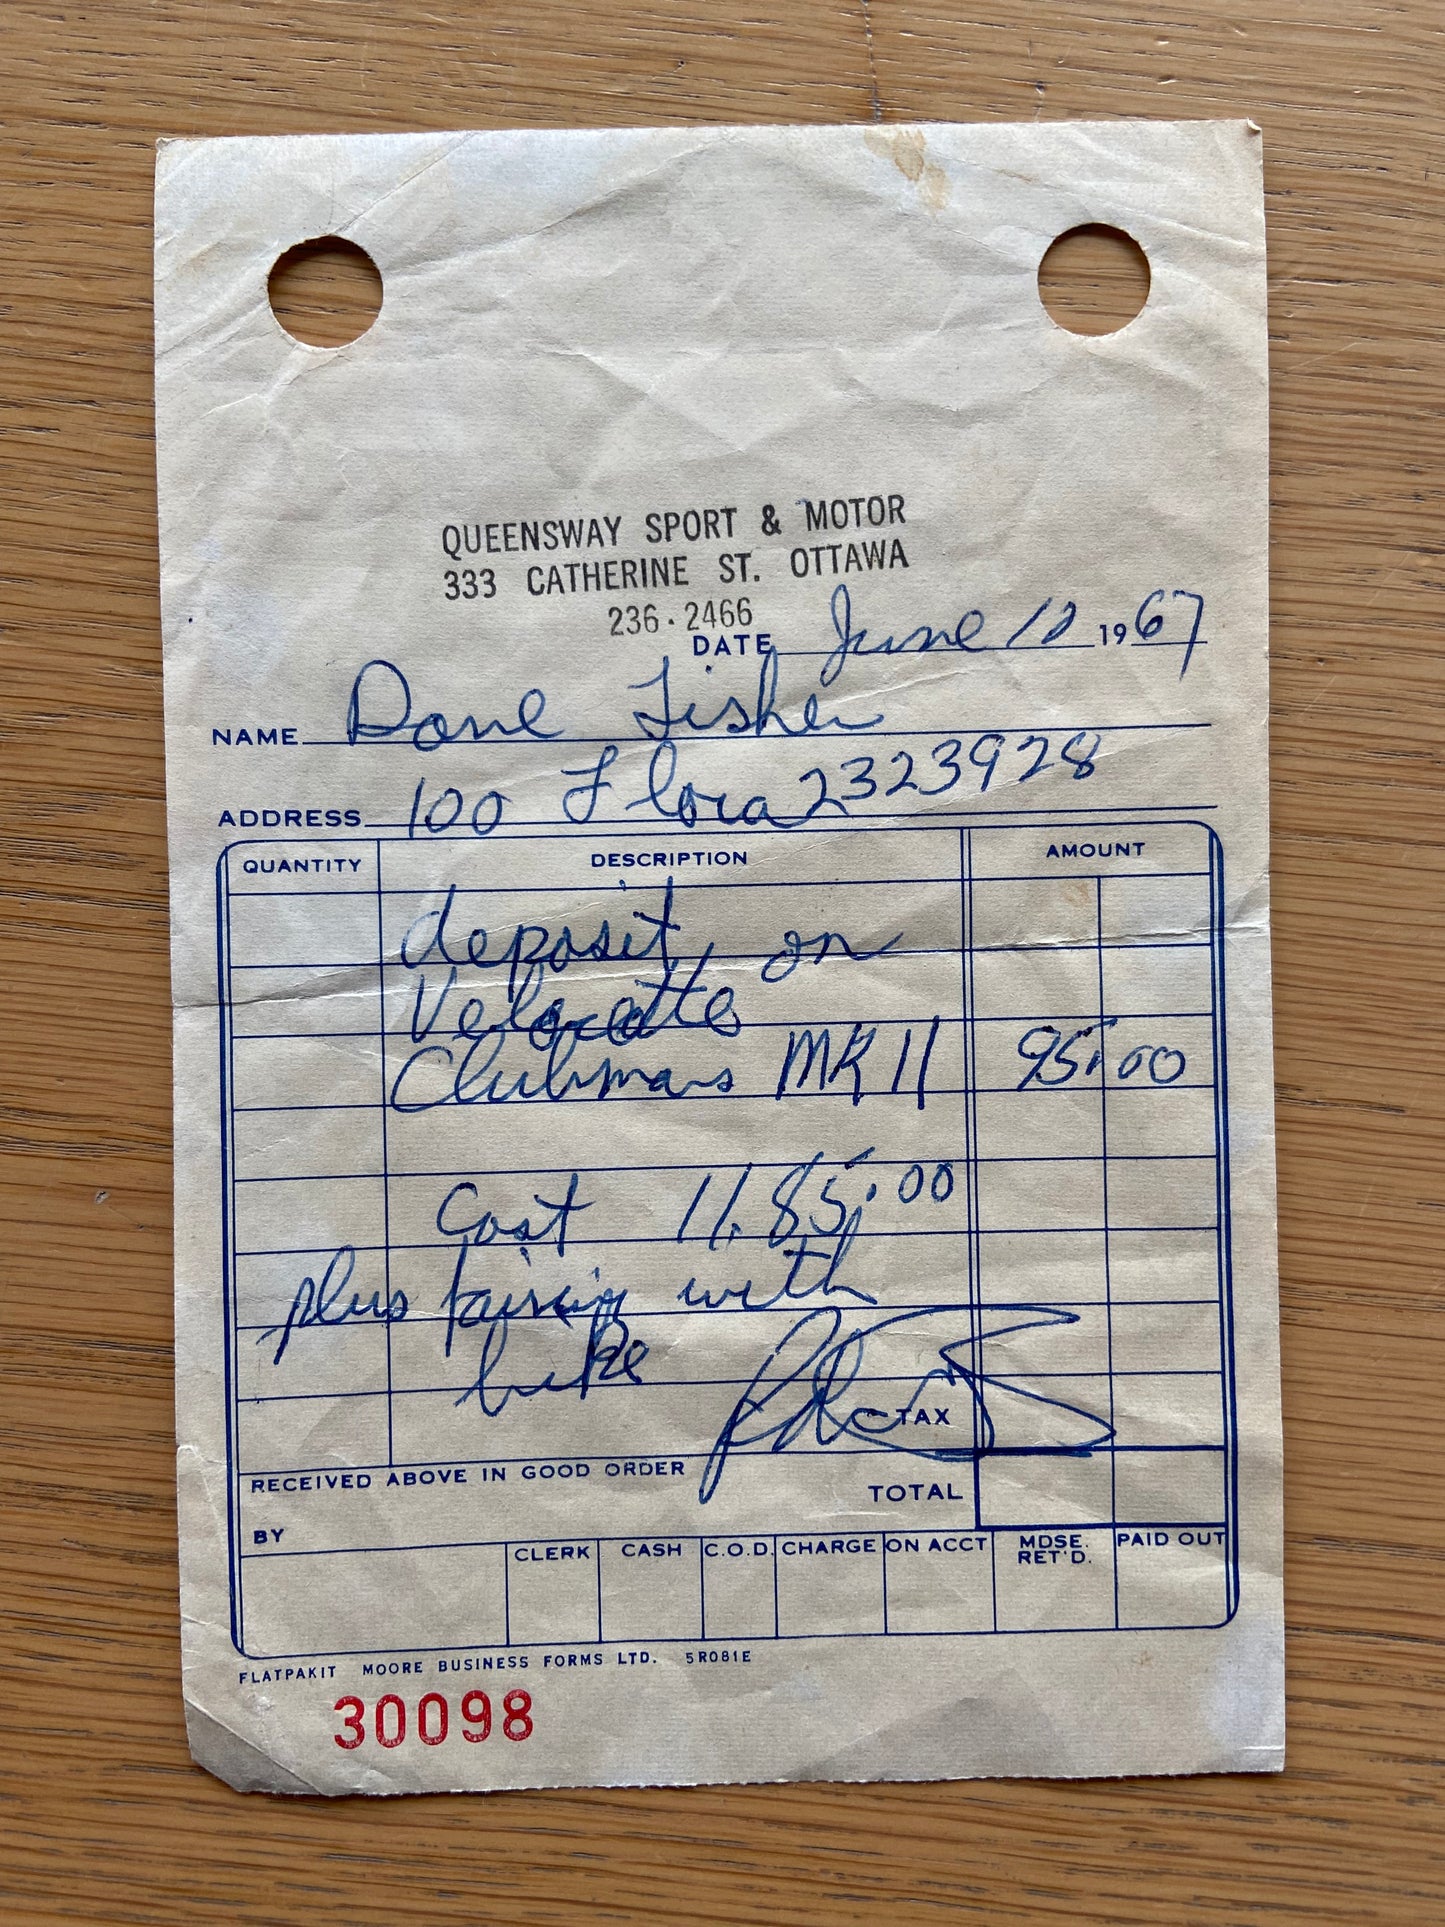 QUEENSWAY SPORT & MOTOR
333 CATHERINE ST. OTTAWA
236·2466
DATE June 10 1967
NAME Dave Fisher
ADDRESS 100 Flora 2323928
QUANTITY DESCRIPTION AMOUNT
deposit on
Velocette
Clubmans MK II 95.00
Cost 11.85.00
plus fairing with
bike
TAX
RECEIVED ABOVE IN GOOD ORDER
TOTAL
BY
CLERK CASH C.O.D. CHARGE ON ACCT MDSE. RET'D. PAID OUT
FLATPAKIT MOORE BUSINESS FORMS LTD. 5R081E
30098